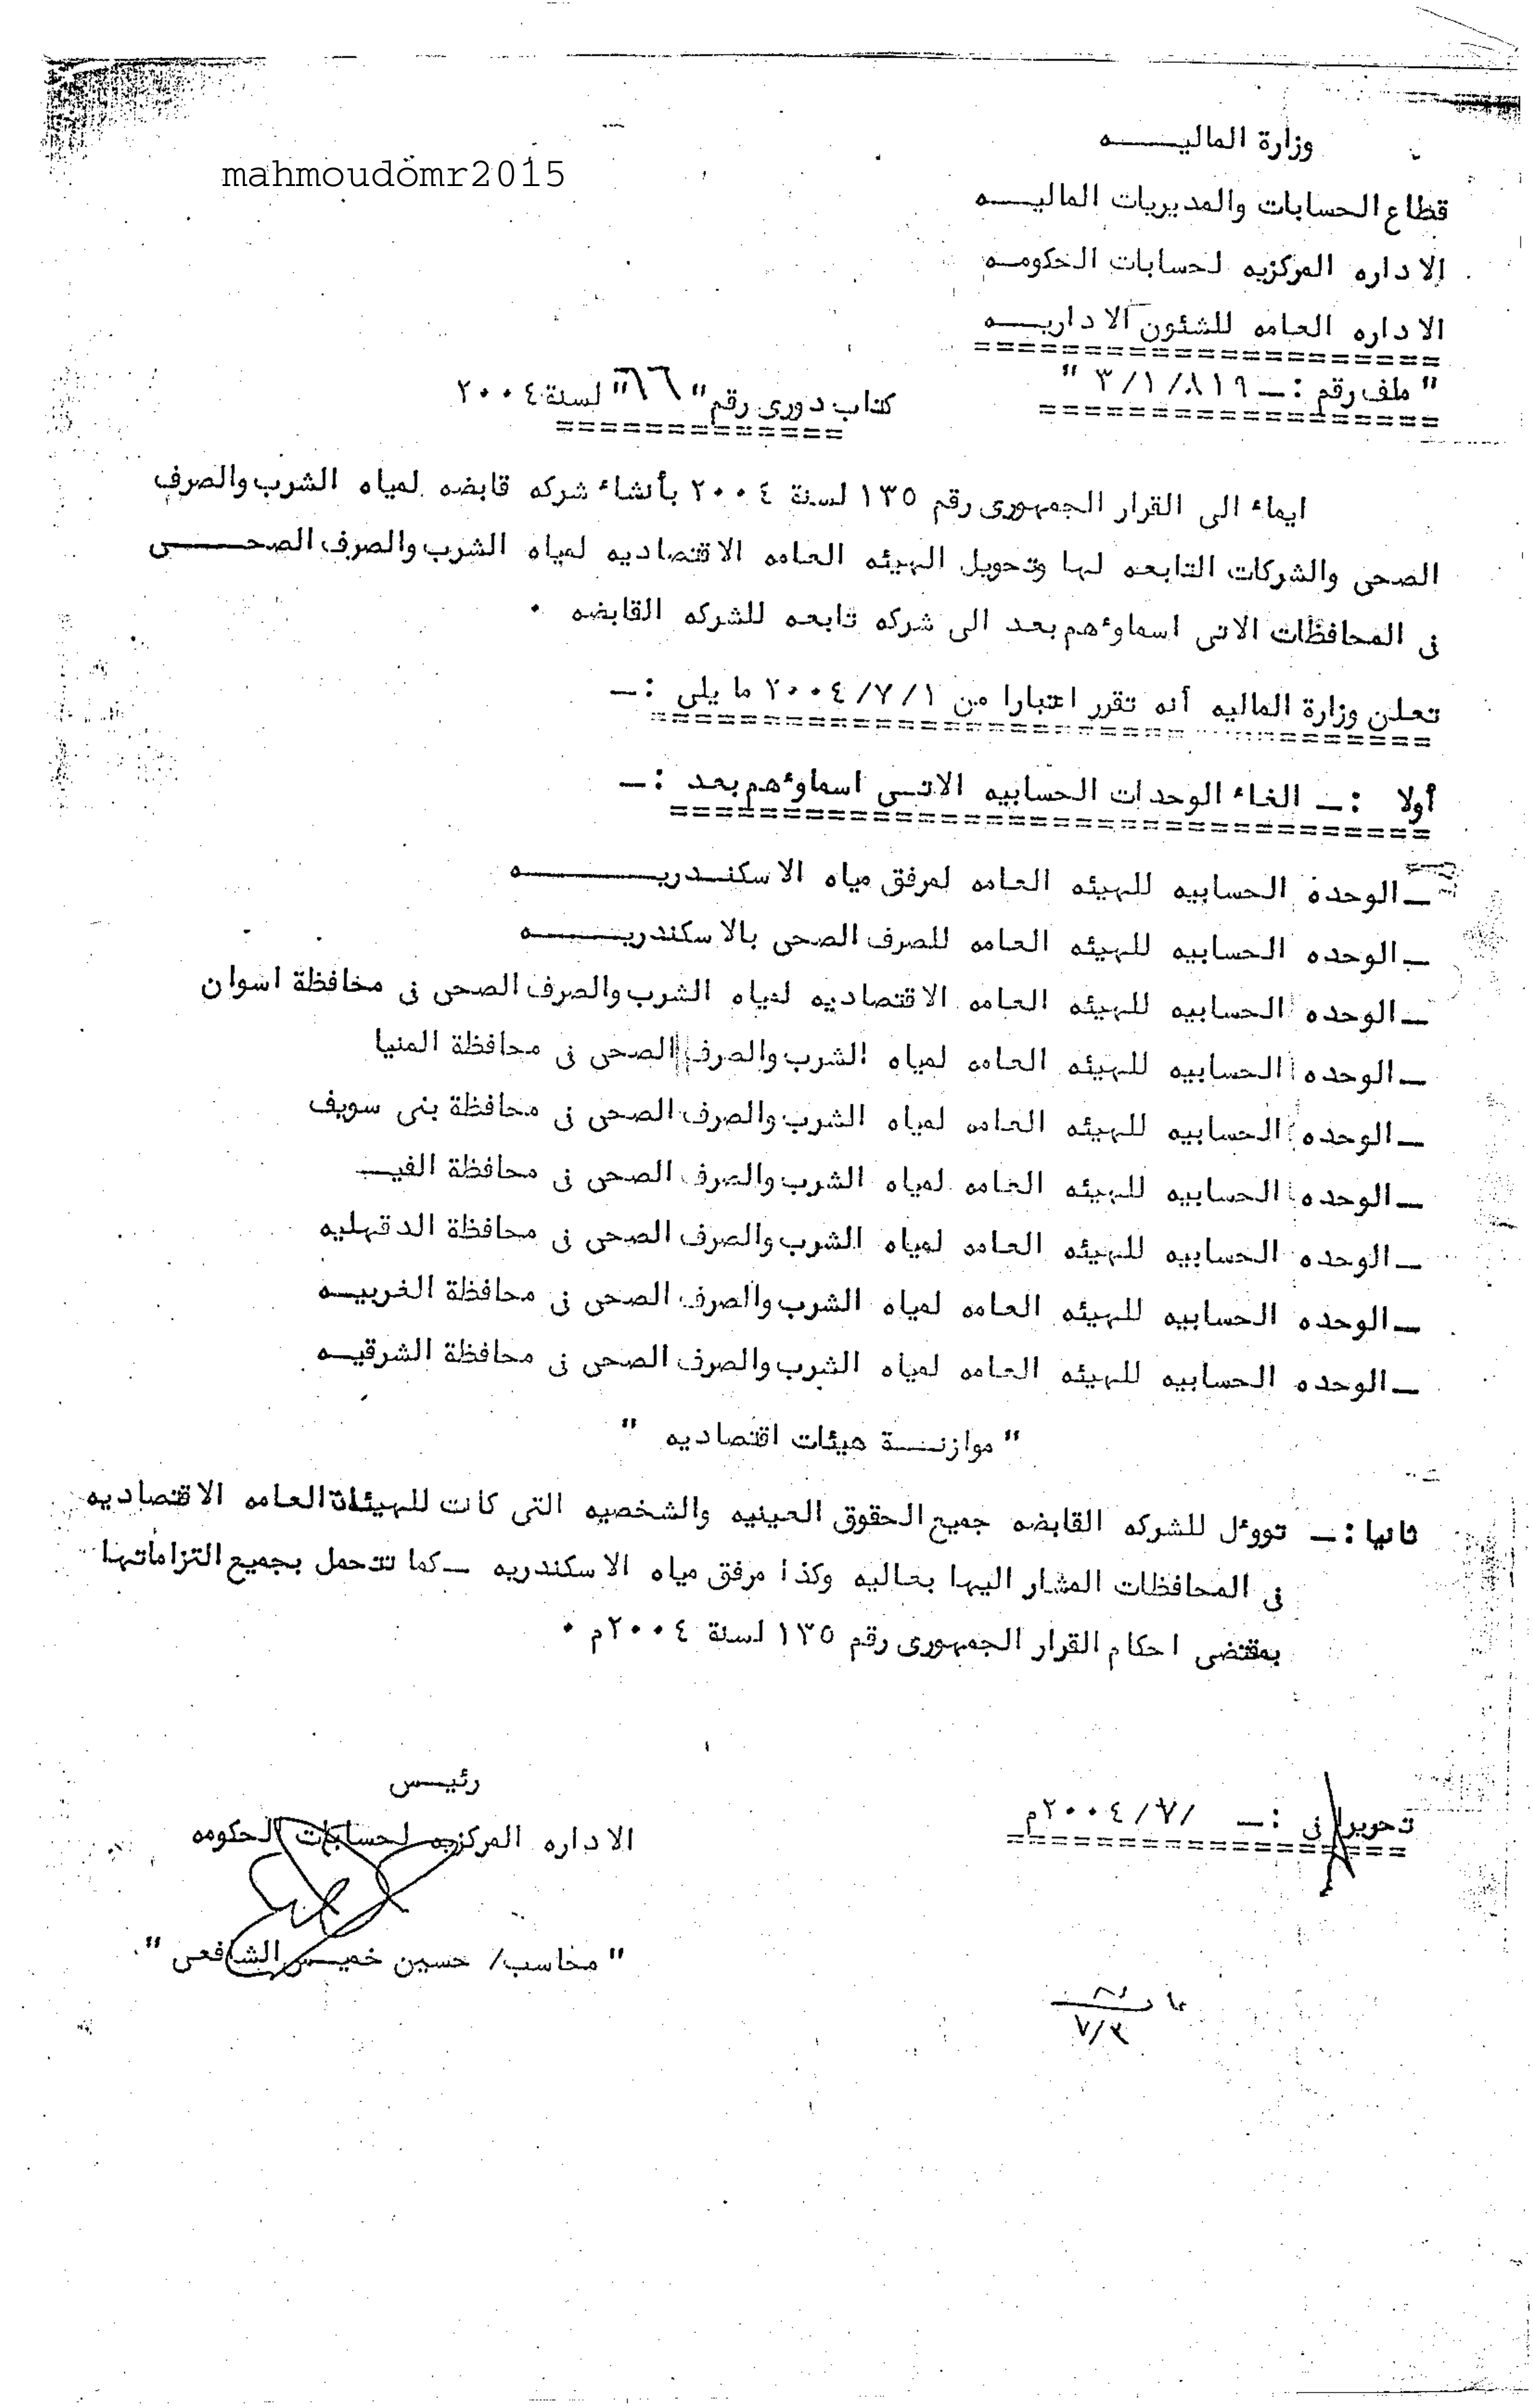 mahmoudomr2015
وزارة الماليـــــه
قطاع الحسابات والمديريات الماليـــه
الاداره المركزيه لحسابات الحكومـه
الاداره العامه للشئون الاداريـــه
" ملف رقم :ــ ٣/١/٨١٩ "
كتاب دورى رقم "٦٦" لسنة ٢٠٠٤
ايماء الى القرار الجمهورى رقم ١٣٥ لسنة ٢٠٠٤ بأنشاء شركه قابضه لمياه الشرب والصرف
الصحى والشركات التابعه لها وتحويل الهيئه العامه الاقتصاديه لمياه الشرب والصرف الصحــــى
فى المحافظات الاتى اسماوءهم بعد الى شركه تابعه للشركه القابضه ٠
تعلن وزارة الماليه أنه تقرر اعتبارا من ٢٠٠٤/٧/١ ما يلى :ــ
أولا :ــ الغاء الوحدات الحسابيه الاتــى اسماوءهم بعد :ــ
ــ الوحده الحسابيه للهيئه العامه لمرفق مياه الاسكنــدريـــــــه
ــ الوحده الحسابيه للهيئه العامه للصرف الصحى بالاسكندريـــــه
ــ الوحده الحسابيه للهيئه العامه الاقتصاديه لمياه الشرب والصرف الصحى فى محافظة اسوان
ــ الوحده الحسابيه للهيئه العامه لمياه الشرب والصرف الصحى فى محافظة المنيا
ــ الوحده الحسابيه للهيئه العامه لمياه الشرب والصرف الصحى فى محافظة بنى سويف
ــ الوحده الحسابيه للهيئه العامه لمياه الشرب والصرف الصحى فى محافظة الفيــ
ــ الوحده الحسابيه للهيئه العامه لمياه الشرب والصرف الصحى فى محافظة الدقهليه
ــ الوحده الحسابيه للهيئه العامه لمياه الشرب والصرف الصحى فى محافظة الغربيــه
ــ الوحده الحسابيه للهيئه العامه لمياه الشرب والصرف الصحى فى محافظة الشرقيــه
" موازنـــة هيئات اقتصاديه "
ثانيا :ــ توءول للشركه القابضه جميع الحقوق العينيه والشخصيه التى كانت للهيئات العامه الاقتصاديه
فى المحافظات المشار اليها بعاليه وكذا مرفق مياه الاسكندريه ــ كما تتحمل بجميع التزاماتها
بمقتضى احكام القرار الجمهورى رقم ١٣٥ لسنة ٢٠٠٤م ٠
رئيــس
تحريرا فى :ــ /٢٠٠٤/٧م
الاداره المركزيه لحسابات الحكومه
" محاسب/ حسين خميــس الشافعى "
٧/٣